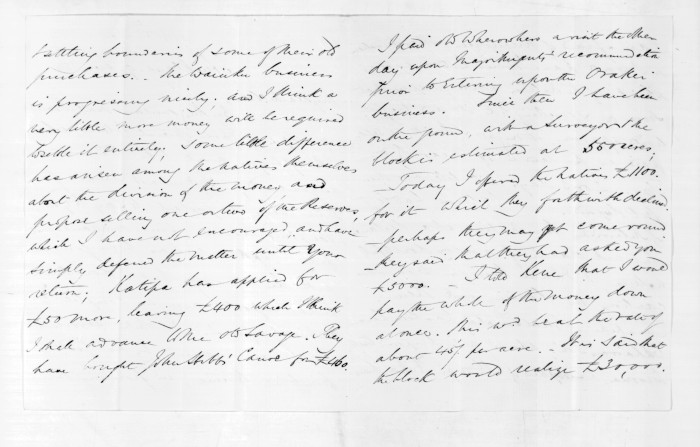 settling boundaries of some of their old
purchases. - The Waiuku business
is progressing nicely. and I think a
very little more money will be required
to settle it entirely; some little difference
has arisen among the natives themselves
about the division of the money and
propose selling one or two of the Reserves,
which I have not encouraged, and have
simply defered the matter until your
return; Katipa has applied for
£50 more, leaving £400 which I think
I shall advance the old Savage. They
have bought John Stubbs' Canoe for £160.
I paid old Wherowhero a visit the other
day upon Major Nugent's recommendation
prior to entering upon the Orakei
business. Since then I have been
on the ground, with a Surveyor & the
block is estimated at 500 acres;
- Today I offered the natives £1100.
for it which they forthwith declined.
- perhaps they may yet come round
- they said that they had asked you
£5000. - I told Kene that I would
pay the whole of the money down
at once. this wd. be at the rate of
about 45/ per acre. - It is said that
the block would realize £30,000.